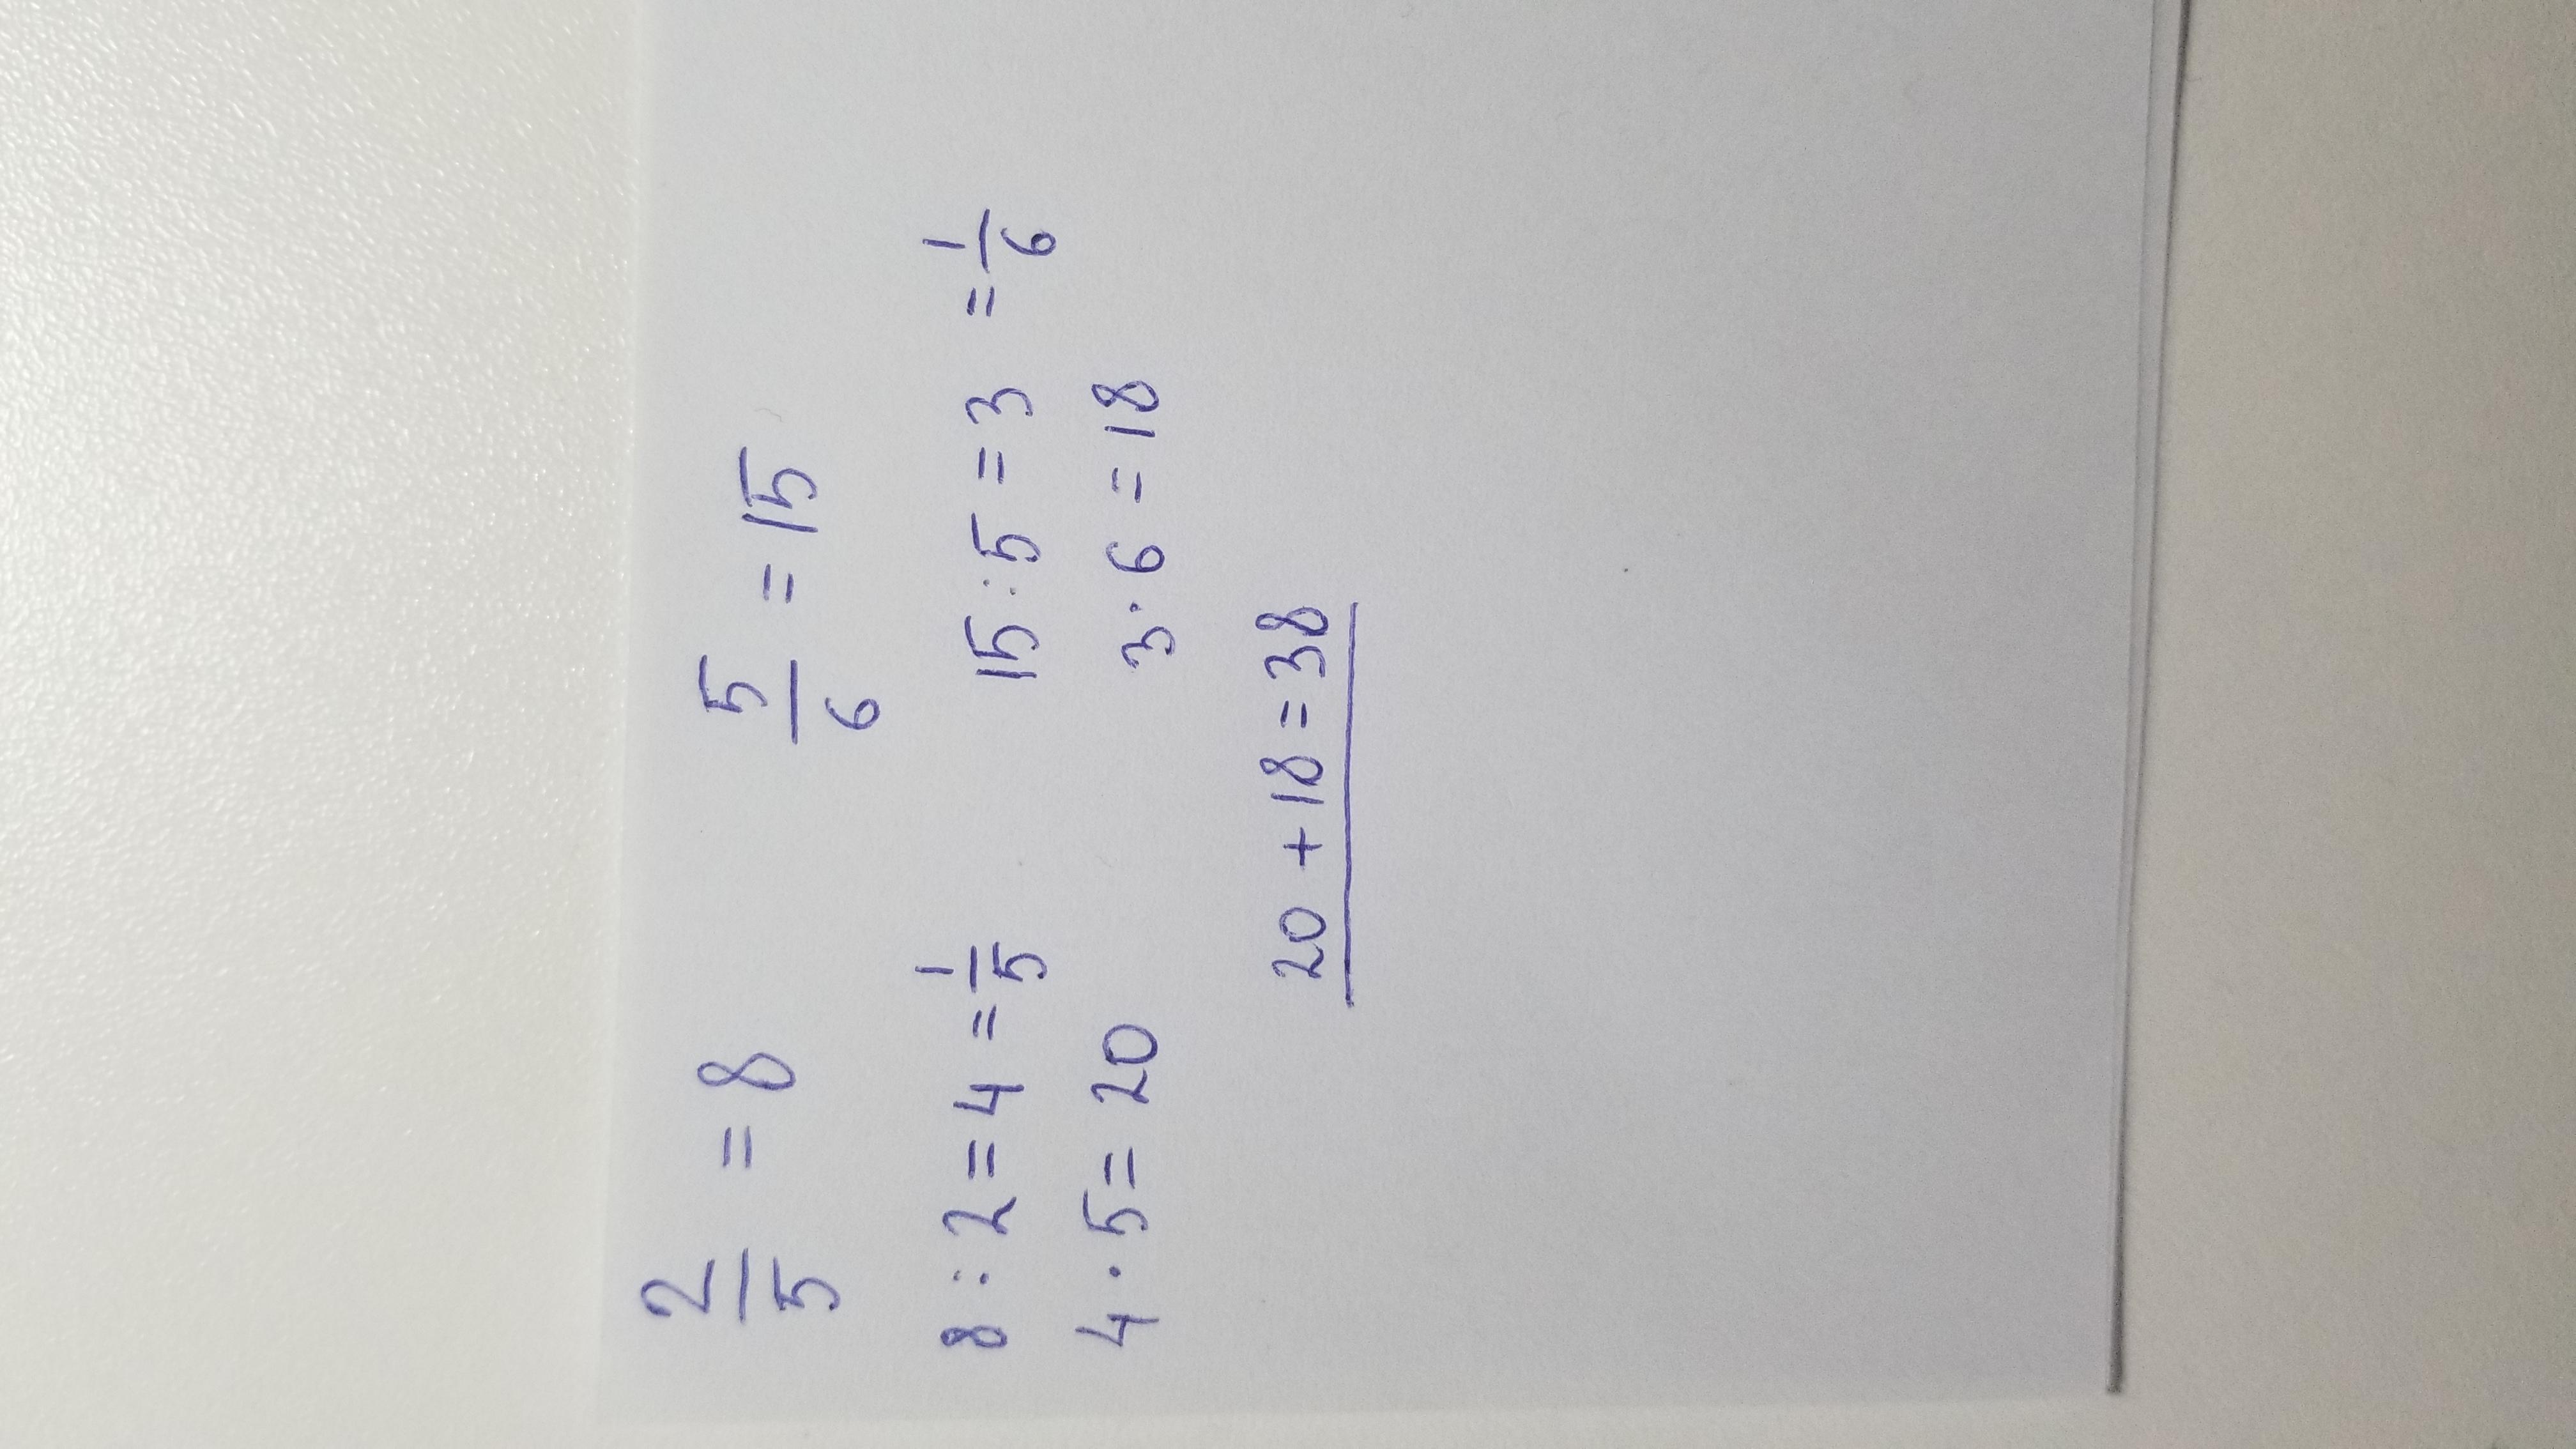 2/5 = 8    5/6 = 15
8 : 2 = 4 = 1/5    15 : 5 = 3 = 1/6
4 · 5 = 20    3 · 6 = 18
20 + 18 = 38